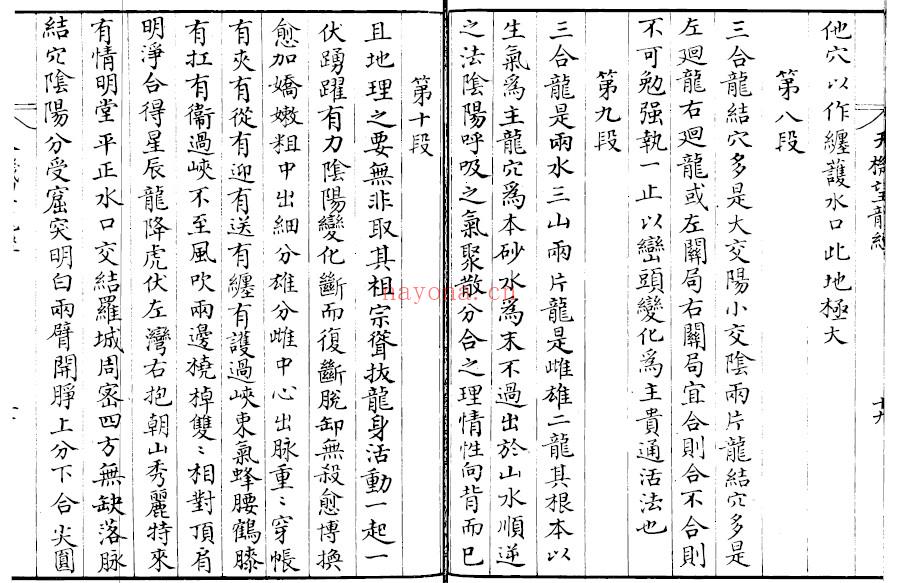 他穴以作纏護水口此地極大
第八段
三合龍結穴多是大交陽小交陰兩片龍結穴多是
左廻龍右廻龍或左關局右關局宜合則合不合則
不可勉强執一止以巒頭變化為主貴通活法也
第九段
三合龍是兩水三山兩片龍是雌雄二龍其根本以
生氣為主龍穴為本砂水為末不過出於山水順逆
之法陰陽呼吸之氣聚散分合之理情性向背而已
天機望龍經
十九
第十段
且地理之要無非取其祖宗聳拔龍身活動一起一
伏踴躍有力陰陽變化斷而復斷脫卸無殺愈博換
愈加嬌嫩粗中出細分雄分雌中心出脉重〻穿帳
有夾有從有迎有送有纏有護過峽束氣蜂腰鶴膝
有扛有衞過峽不至風吹兩邊橈棹雙〻相對頂肩
明淨台得星辰龍降虎伏左灣右抱朝山秀麗特來
有情明堂平正水口交結羅城周密四方無缺落脉
結穴陰陽分受窟突明白兩臂開睜上分下合尖圓
hayona.cn